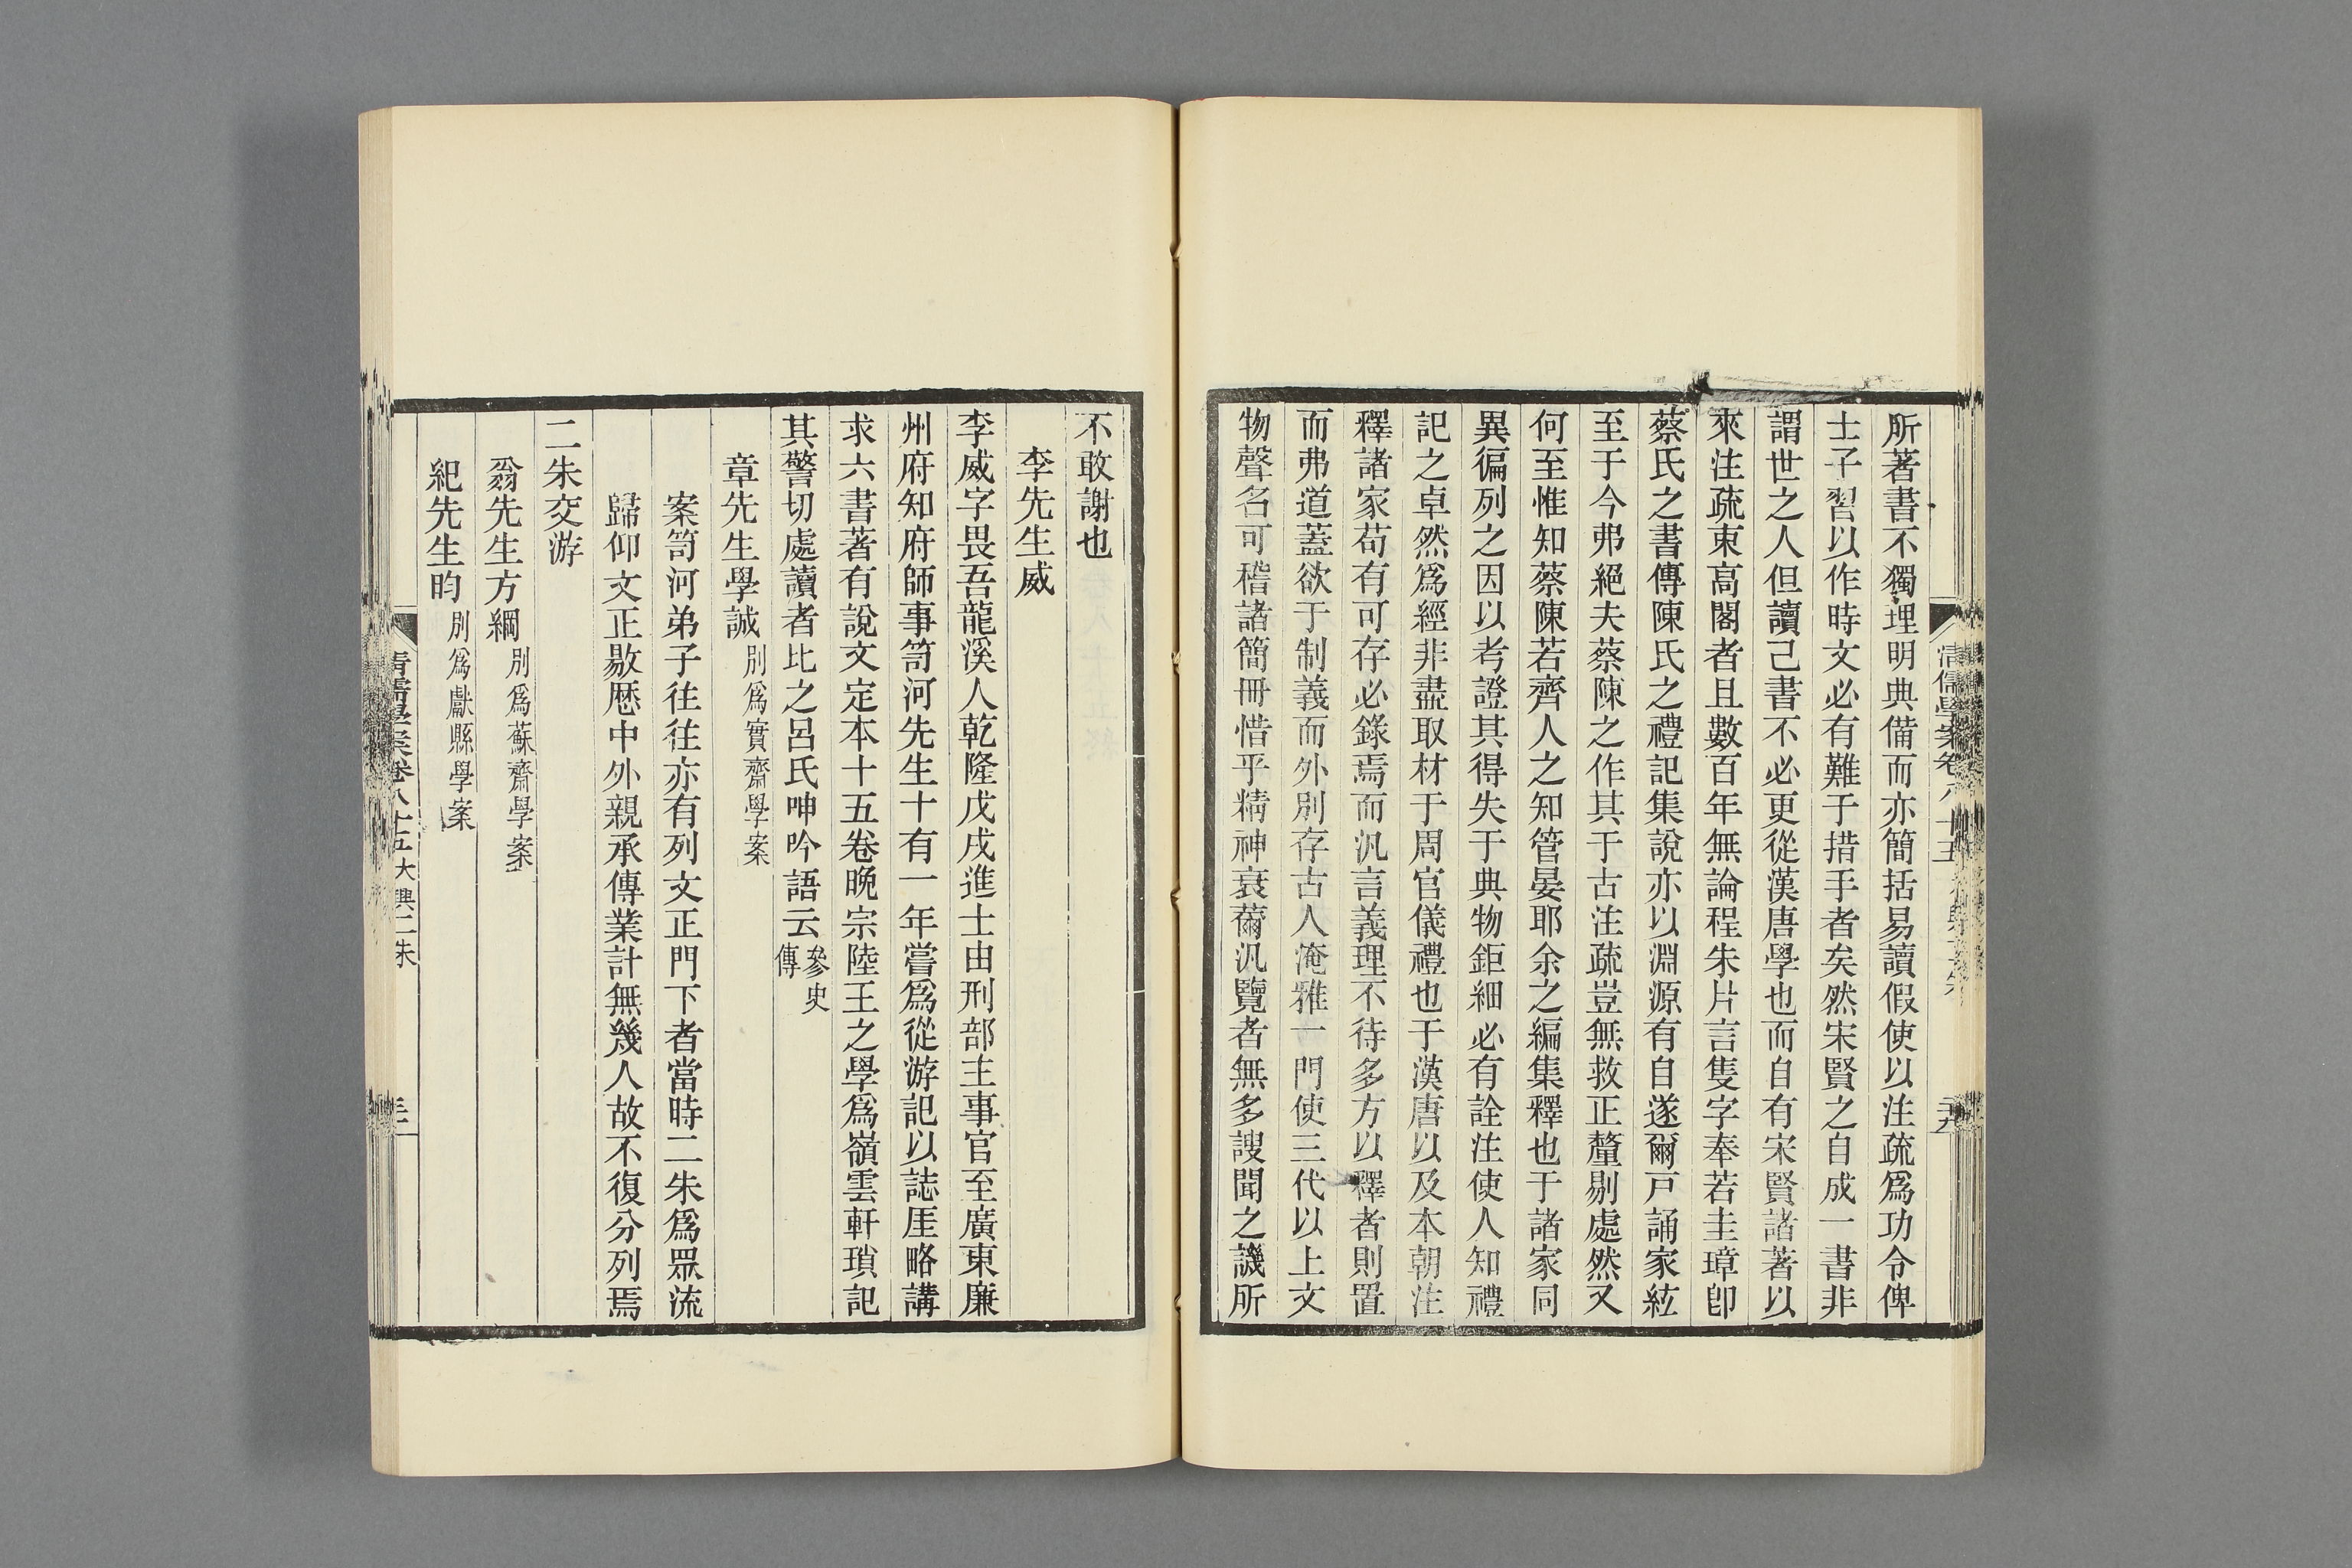 所著書不獨理明典備而亦簡括易讀假使以注疏爲功令俾
士子習以作時文必有難于措手者矣然宋賢之自成一書非
謂世之人但讀己書不必更從漢唐學也而自有宋賢諸著以
來注疏束高閣者且數百年無論程朱片言隻字奉若圭璋卽
蔡氏之書傳陳氏之禮記集說亦以淵源有自遂爾戸誦家絃
至于今弗絕夫蔡陳之作其于古注疏豈無救正釐剔處然又
何至惟知蔡陳若齊人之知管晏耶余之編集釋也于諸家同
異徧列之因以考證其得失于典物鉅細必有詮注使人知禮
記之卓然爲經非盡取材于周官儀禮也于漢唐以及本朝注
釋諸家苟有可存必錄焉而汎言義理不待多方以釋者則置
而弗道蓋欲于制義而外別存古人淹雅一門使三代以上文
物聲名可稽諸簡冊惜乎精神衰薾汎覽者無多謏聞之譏所
不敢謝也
李先生威
李威字畏吾龍溪人乾隆戊戌進士由刑部主事官至廣東廉
州府知府師事笥河先生十有一年嘗爲從游記以誌厓略講
求六書著有說文定本十五卷晚宗陸王之學爲嶺雲軒瑣記
其警切處讀者比之呂氏呻吟語云參史傳
章先生學誠別爲實齋學案
案笥河弟子往往亦有列文正門下者當時二朱爲眾流
歸仰文正敭歷中外親承傳業計無幾人故不復分列焉
二朱交游
翁先生方綱別爲蘇齋學案
紀先生昀別爲獻縣學案
清儒學案卷八十五大興二朱